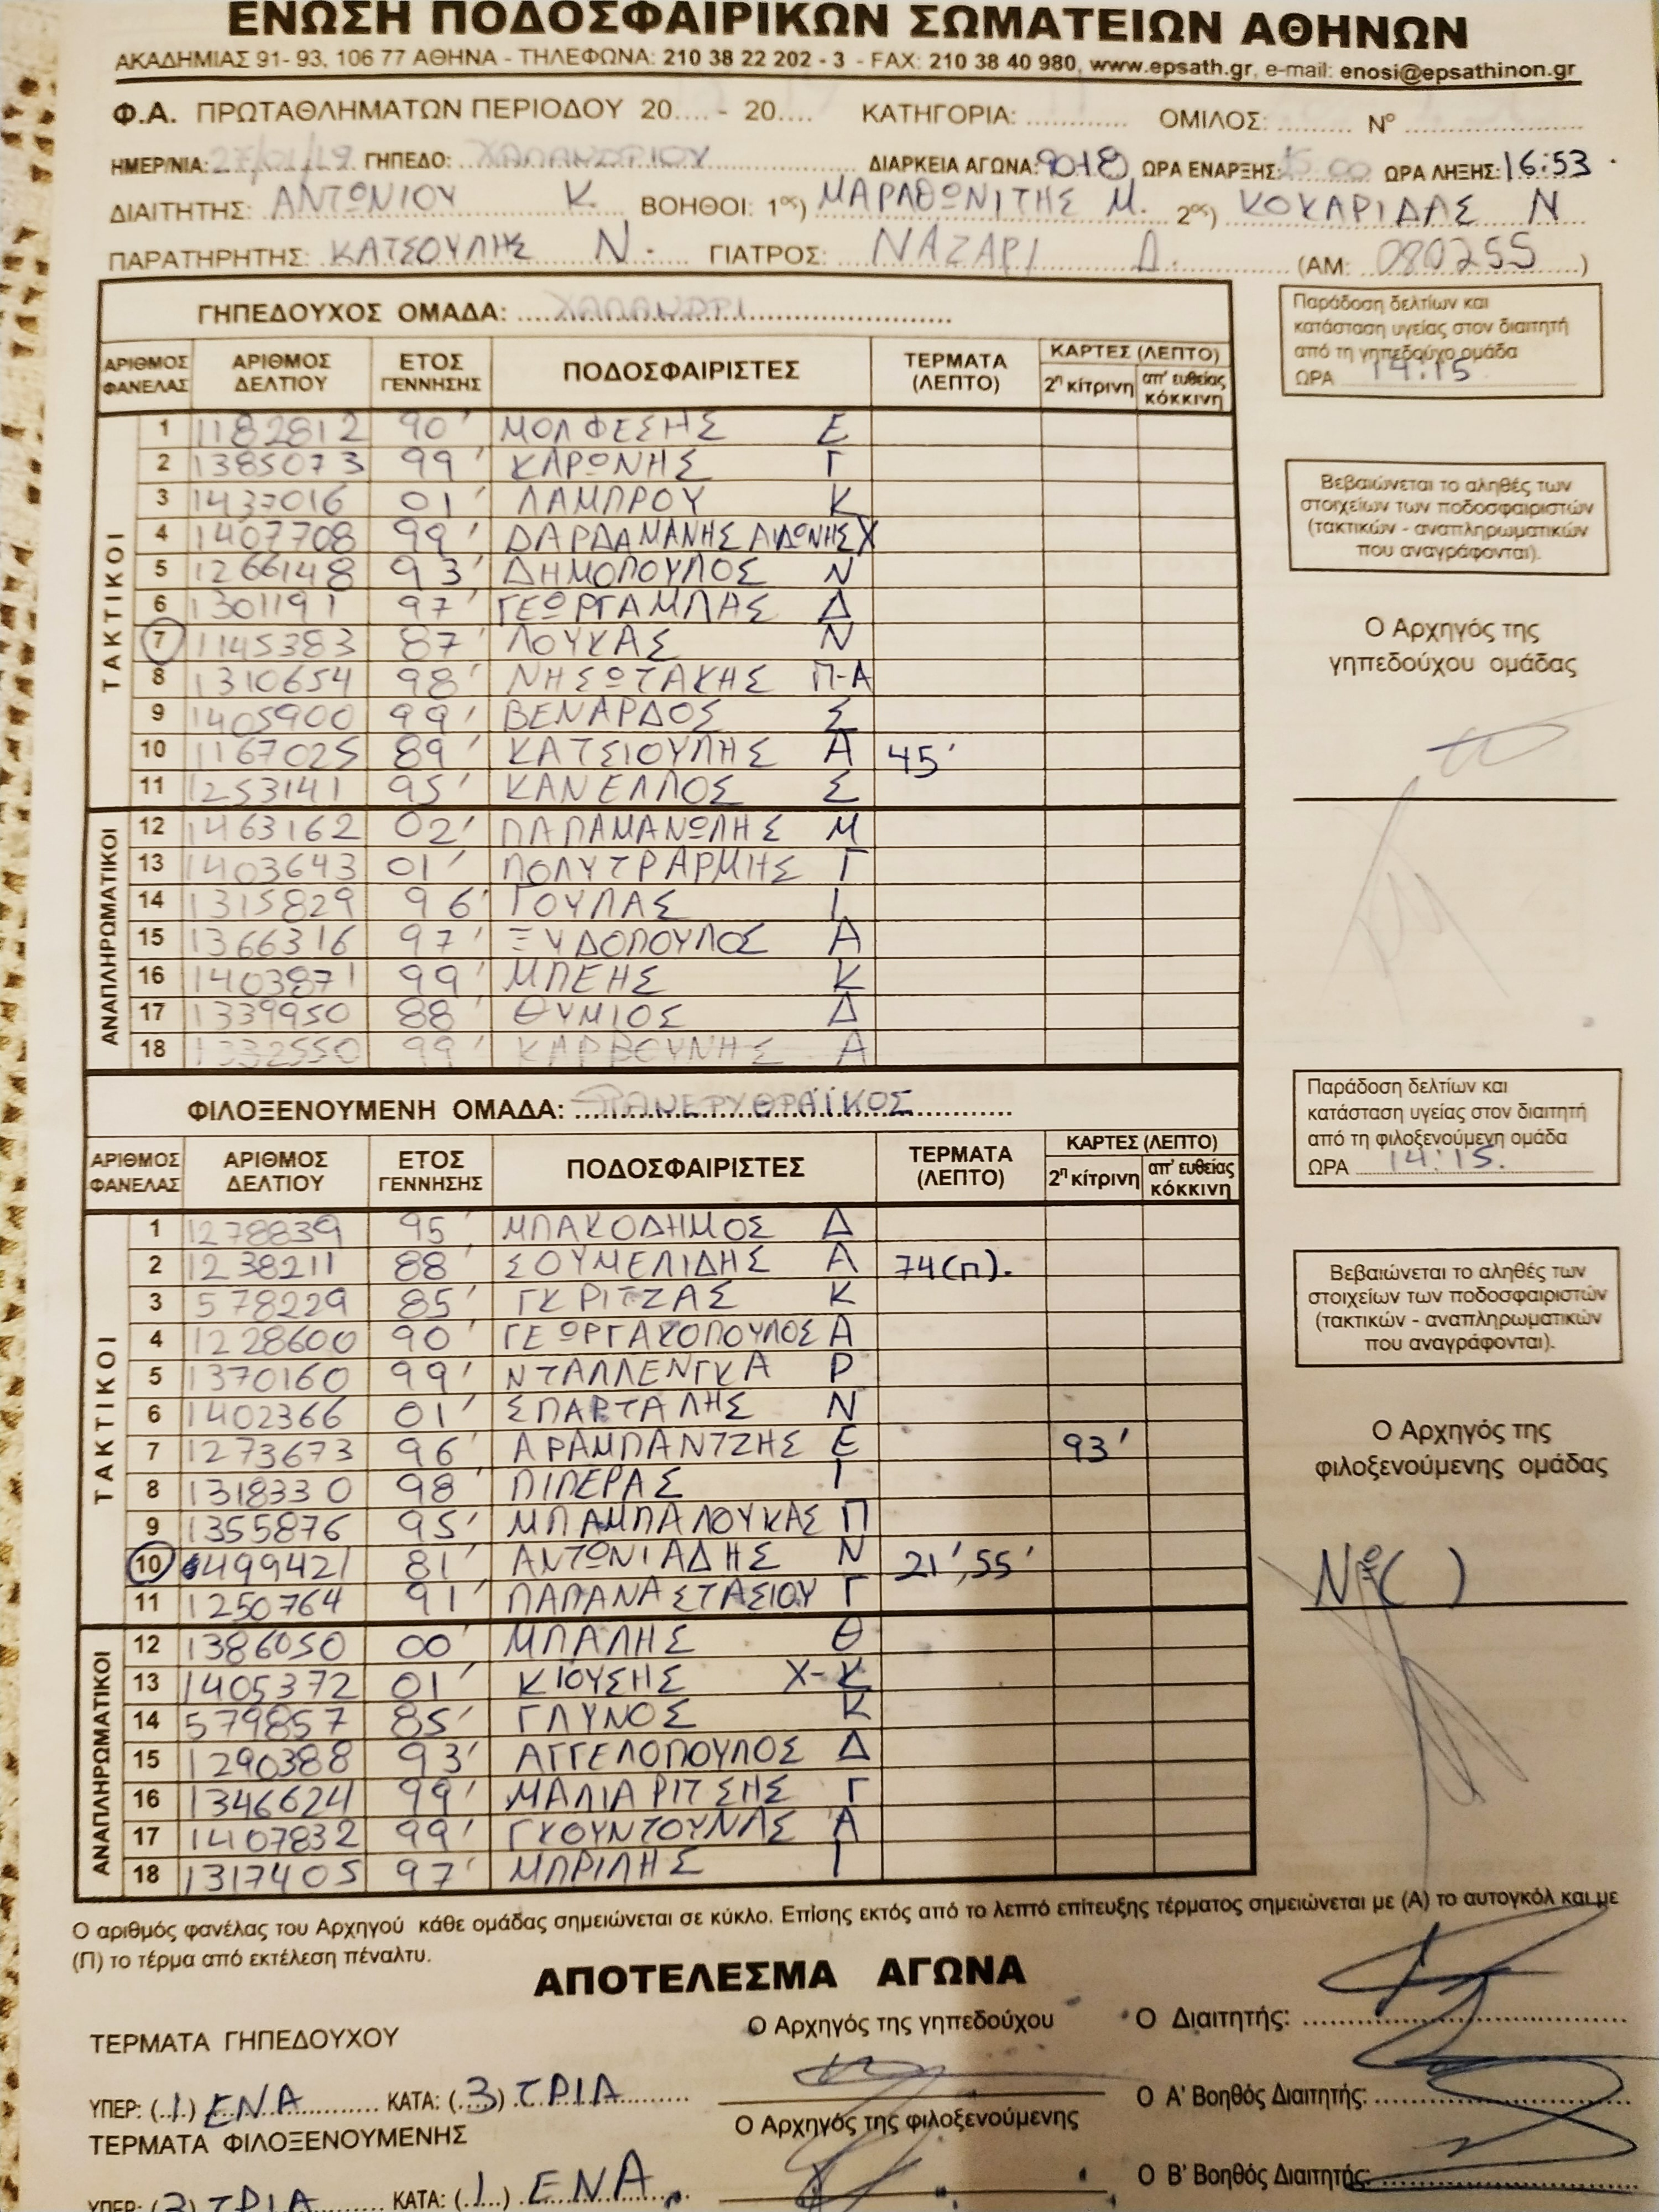 ΕΝΩΣΗ ΠΟΔΟΣΦΑΙΡΙΚΩΝ ΣΩΜΑΤΕΙΩΝ ΑΘΗΝΩΝ
ΑΚΑΔΗΜΙΑΣ 91- 93, 106 77 ΑΘΗΝΑ - ΤΗΛΕΦΩΝΑ: 210 38 22 202 - 3 - FAX: 210 38 40 980, www.epsath.gr, e-mail: enosi@epsathinon.gr
Φ.Α. ΠΡΩΤΑΘΛΗΜΑΤΩΝ ΠΕΡΙΟΔΟΥ 20.... - 20.... ΚΑΤΗΓΟΡΙΑ: ............ ΟΜΙΛΟΣ: ......... Νº ......................
ΗΜΕΡ/ΝΙΑ: 27/01/19 ΓΗΠΕΔΟ: ΧΑΛΑΝΔΡΙΟΥ ΔΙΑΡΚΕΙΑ ΑΓΩΝΑ: 90+8 ΩΡΑ ΕΝΑΡΞΗΣ: 15:00 ΩΡΑ ΛΗΞΗΣ: 16:53
ΔΙΑΙΤΗΤΗΣ: ΑΝΤΩΝΙΟΥ Κ. ΒΟΗΘΟΙ: 1ος) ΜΑΡΑΘΩΝΙΤΗΣ Μ. 2ος) ΚΟΚΑΡΙΔΑΣ Ν
ΠΑΡΑΤΗΡΗΤΗΣ: ΚΑΤΣΟΥΛΗΣ Ν. ΓΙΑΤΡΟΣ: ΝΑΖΑΡΙ Δ. (ΑΜ: 080255)
ΓΗΠΕΔΟΥΧΟΣ ΟΜΑΔΑ: ΧΑΛΑΝΔΡΙ
Παράδοση δελτίων και
κατάσταση υγείας στον διαιτητή
από τη γηπεδούχο ομάδα
ΩΡΑ 14:15
ΑΡΙΘΜΟΣ ΦΑΝΕΛΑΣ ΑΡΙΘΜΟΣ ΔΕΛΤΙΟΥ ΕΤΟΣ ΓΕΝΝΗΣΗΣ ΠΟΔΟΣΦΑΙΡΙΣΤΕΣ ΤΕΡΜΑΤΑ (ΛΕΠΤΟ) ΚΑΡΤΕΣ (ΛΕΠΤΟ) 2η κίτρινη απ' ευθείας κόκκινη
ΤΑΚΤΙΚΟΙ
1 1182812 90' ΜΟΛΦΕΣΗΣ Ε
2 1385073 99' ΚΑΡΩΝΗΣ Γ
3 1437016 01' ΛΑΜΠΡΟΥ Κ
4 1407708 99' ΔΑΡΔΑΜΑΝΗΣ ΑΙΔΩΝΗΣ Χ
5 1266148 93' ΔΗΜΟΠΟΥΛΟΣ Ν
6 1301191 97' ΓΕΩΡΓΑΜΠΛΗΣ Δ
7 1145383 87' ΛΟΥΚΑΣ Ν
8 1310654 98' ΝΗΣΩΤΑΚΗΣ Π-Α
9 1405900 99' ΒΕΝΑΡΔΟΣ Σ
10 1167025 89' ΚΑΤΣΙΟΥΛΗΣ Α 45'
11 1253141 95' ΚΑΝΕΛΛΟΣ Σ
ΑΝΑΠΛΗΡΩΜΑΤΙΚΟΙ
12 1463162 02' ΠΑΠΑΜΑΝΩΛΗΣ Μ
13 1403643 01' ΠΟΛΥΤΡΑΡΜΗΣ Γ
14 1315829 96' ΓΟΥΛΑΣ Ι
15 1366316 97' ΞΥΔΟΠΟΥΛΟΣ Α
16 1403871 99' ΜΠΕΗΣ Κ
17 1339950 88' ΘΥΜΙΟΣ Δ
18 1332550 99' ΚΑΡΒΟΥΝΗΣ Α
Βεβαιώνεται το αληθές των
στοιχείων των ποδοσφαιριστών
(τακτικών - αναπληρωματικών
που αναγράφονται).
Ο Αρχηγός της
γηπεδούχου ομάδας
ΦΙΛΟΞΕΝΟΥΜΕΝΗ ΟΜΑΔΑ: ΠΑΝΕΡΥΘΡΑΪΚΟΣ
Παράδοση δελτίων και
κατάσταση υγείας στον διαιτητή
από τη φιλοξενούμενη ομάδα
ΩΡΑ 14:15.
ΑΡΙΘΜΟΣ ΦΑΝΕΛΑΣ ΑΡΙΘΜΟΣ ΔΕΛΤΙΟΥ ΕΤΟΣ ΓΕΝΝΗΣΗΣ ΠΟΔΟΣΦΑΙΡΙΣΤΕΣ ΤΕΡΜΑΤΑ (ΛΕΠΤΟ) ΚΑΡΤΕΣ (ΛΕΠΤΟ) 2η κίτρινη απ' ευθείας κόκκινη
ΤΑΚΤΙΚΟΙ
1 1278839 95' ΜΠΑΚΟΔΗΜΟΣ Δ
2 1238211 88' ΣΟΥΜΕΛΙΔΗΣ Α 74(Π).
3 578229 85' ΓΚΡΙΤΖΑΣ Κ
4 1228600 90' ΓΕΩΡΓΑΚΟΠΟΥΛΟΣ Α
5 1370160 99' ΝΤΑΛΛΕΝΓΚΑ Ρ
6 1402366 01' ΣΠΑΡΤΑΛΗΣ Ν
7 1273673 96' ΑΡΑΜΠΑΝΤΖΗΣ Ε 93'
8 1318330 98' ΠΙΠΕΡΑΣ Ι
9 1355876 95' ΜΠΑΜΠΑΛΟΥΚΑΣ Π
10 499421 81' ΑΝΤΩΝΙΑΔΗΣ Ν 21', 55'
11 1250764 91' ΠΑΠΑΝΑΣΤΑΣΙΟΥ Γ
ΑΝΑΠΛΗΡΩΜΑΤΙΚΟΙ
12 1386050 00' ΜΠΑΛΗΣ Θ
13 1405372 01' ΚΙΟΥΣΗΣ Χ-Κ
14 579857 85' ΓΛΥΝΟΣ Κ
15 1290388 93' ΑΓΓΕΛΟΠΟΥΛΟΣ Δ
16 1346624 99' ΜΑΛΙΑΡΙΤΣΗΣ Γ
17 1407832 99' ΓΚΟΥΝΤΟΥΝΑΣ Α
18 1317405 97' ΜΠΡΙΛΗΣ Ι
Βεβαιώνεται το αληθές των
στοιχείων των ποδοσφαιριστών
(τακτικών - αναπληρωματικών
που αναγράφονται).
Ο Αρχηγός της
φιλοξενούμενης ομάδας
Ο αριθμός φανέλας του Αρχηγού κάθε ομάδας σημειώνεται σε κύκλο. Επίσης εκτός από το λεπτό επίτευξης τέρματος σημειώνεται με (Α) το αυτογκόλ και με
(Π) το τέρμα από εκτέλεση πέναλτυ.
ΑΠΟΤΕΛΕΣΜΑ ΑΓΩΝΑ
ΤΕΡΜΑΤΑ ΓΗΠΕΔΟΥΧΟΥ Ο Αρχηγός της γηπεδούχου Ο Διαιτητής:
ΥΠΕΡ: (1) ΕΝΑ ΚΑΤΑ: (3) ΤΡΙΑ Ο Α' Βοηθός Διαιτητής:
ΤΕΡΜΑΤΑ ΦΙΛΟΞΕΝΟΥΜΕΝΗΣ Ο Αρχηγός της φιλοξενούμενης
ΥΠΕΡ: (3) ΤΡΙΑ ΚΑΤΑ: (1) ΕΝΑ. Ο Β' Βοηθός Διαιτητής: